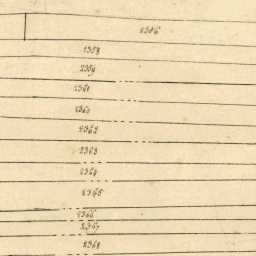 2358
2359
2361
2362
2363
2364
2365
2366
2367
2368